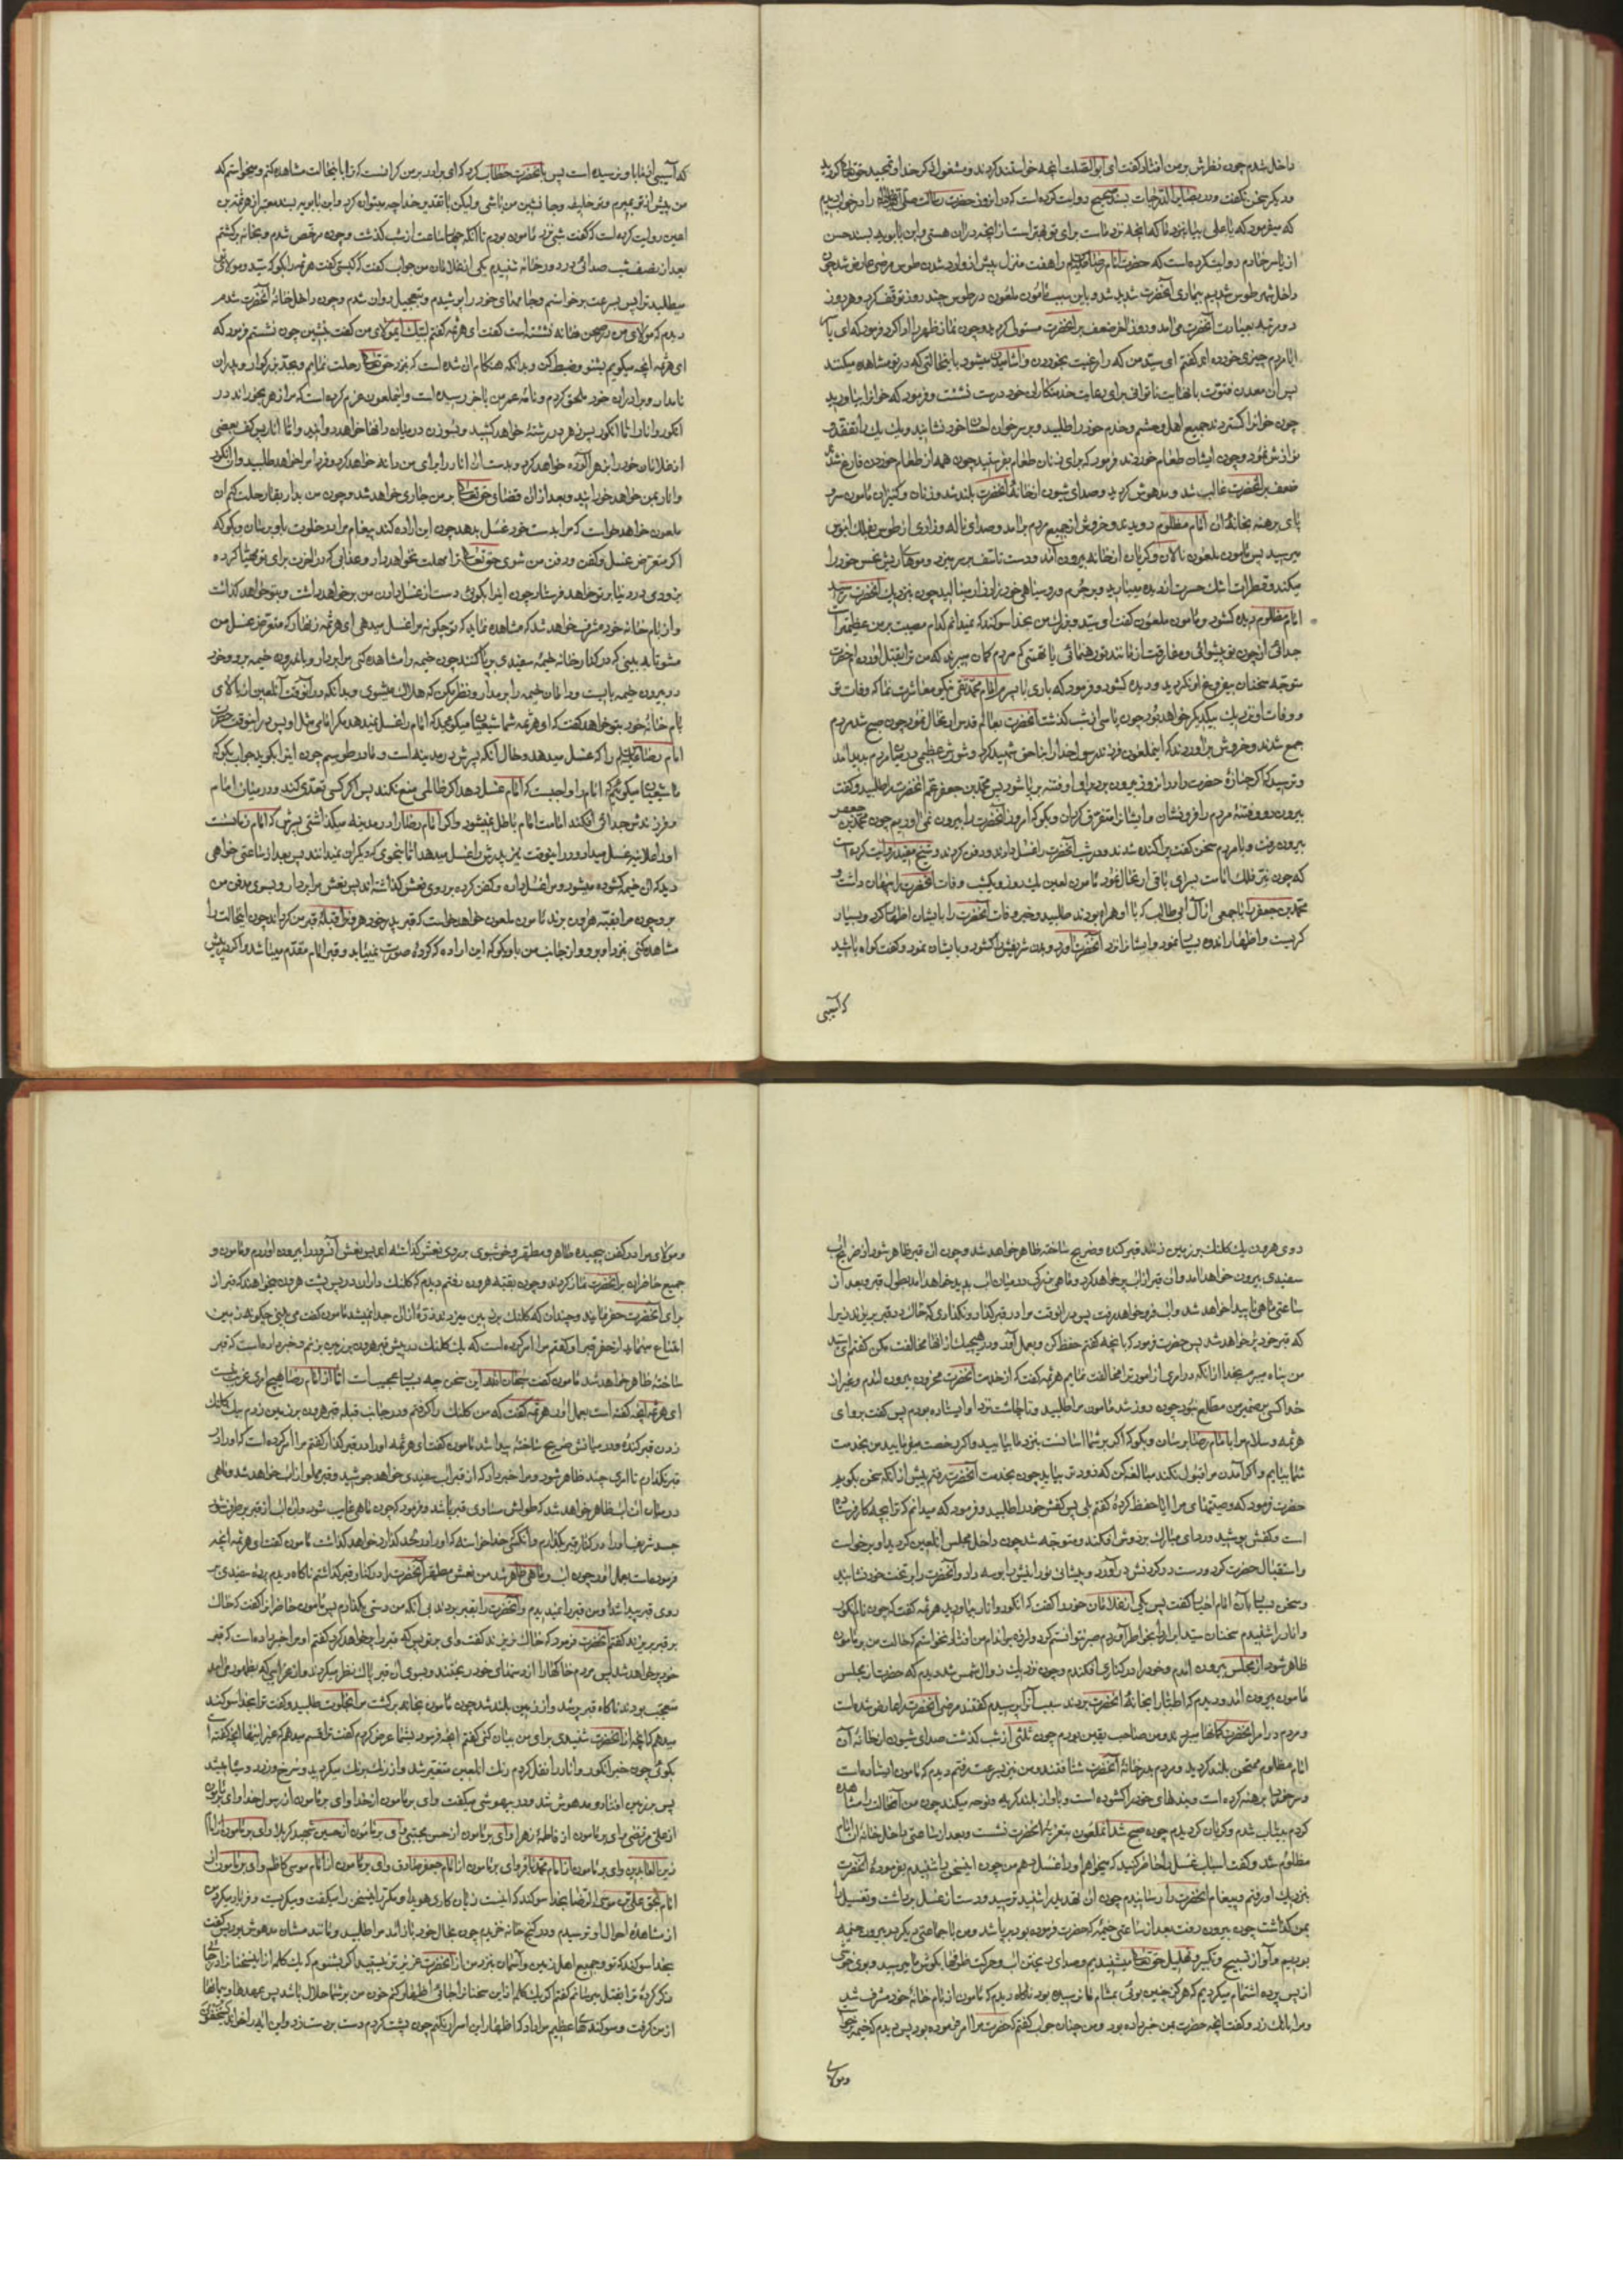 داخل شدم چون نظرش بر من افتاد گفت ای ابوالصلت آنچه خواستند کردند و مشغول ذکر خدا و تمجید حق تعالی گردید
و دیگر سخن نگفت و در بصایر الدرجات بسند صحیح روایت کرده است که در آن روز حضرت رسالت صلی الله علیه و آله را در خواب دیدم
که میفرمود که یا علی بیا بنزد ما که آنچه نزد ماست برای تو بهتر است از آنچه در آن هستی و ابن بابویه بسند حسن
از یاسر خادم روایت کرده است که حضرت امام رضا علیه السلام را هفت منزل پیش از وارد شدن طوس مرضی عارض شد چون
داخل شهر طوس شدیم بیماری آنحضرت شدید شد و باین سبب مأمون ملعون در طوس چند روز توقف کرد و هر روز
دو مرتبه بعیادت آنحضرت می آمد و در روز آخر ضعف بر آنحضرت مستولی گردید و چون نماز ظهر را ادا کرد فرمود که ای یاسر
آیا مردم چیزی خورده اند گفتم ای سید من که را رغبت بخوردن و آشامیدن میشود با اینحالتی که در تو مشاهده میکنند
پس آن معدن فتوت با نهایت ناتوانی برای رعایت خدمتکاران خود درست نشست و فرمود که خوانرا بیاورید
چون خوانرا گستردند جمیع اهل و حشم و خدم خود را طلبید و بر سر خوان احسان خود نشانید و یک یک را تفقد و
نوازش نمود و چون ایشان طعام خوردند فرمود که برای زنان طعام بفرستید چون همه از طعام خوردن فارغ شدند
ضعف بر آنحضرت غالب شد و مدهوش گردید و صدای شیون از خانهٔ آنحضرت بلند شد و زنان و کنیزان مأمون سر و
پای برهنه بخانهٔ آن امام مظلوم دویدند و خروش از جمیع مردم برآمد و صدای ناله و زاری از طوس بفلک آبنوس
میرسید پس مأمون ملعون نالان و گریان از خانه بیرون آمد و دست تأسف بر سر میزد و موهای ریش نحس خود را
میکند و قطرات اشک حسرت از دیده میبارید و بر جرم و رو سیاهی خود زار زار مینالید چون بنزدیک آنحضرت رسید
امام مظلوم دیده گشود و مأمون ملعون گفت ای سید و بزرگ من بخدا سوگند که نمیدانم کدام مصیبت بر من عظیمتر است
جدائی از چون تو پیشوائی و مفارقت از مانند تو رهنمائی یا تهمتی که مردم گمان میبرند که من ترا بقتل آورده ام حضرت
متوجه سخنان بیفروغ او نگردید و دیده گشود و فرمود که باری با پسرم امام محمد تقی نیکو معاشرت نما که وفات تو
و وفات او نزدیک بیکدیگر خواهد بود چون پاسی از شب گذشت آنحضرت بعالم قدس ارتحال نمود چون صبح شد مردم
جمع شدند و خروش برآوردند که این ملعون فرزند رسول خدا را بناحق شهید کرد و شورش عظیمی در میان مردم بهم رسید
و ترسید که اگر جنازهٔ حضرت را در آن روز بیرون برد برای او فتنه برپا شود پس محمد بن جعفر عم آنحضرت را طلبید و گفت
بیرون رو و فتنهٔ مردم را فرو نشان و ایشانرا متفرق گردان و بگو که امروز آنحضرت را بیرون نمی آوریم چون محمد بن جعفر
بیرون رفت و با مردم سخن گفت پراکنده شدند و در شب آنحضرت را غسل دادند و دفن کردند و شیخ مفید روایت کرده است
که چون نیر فلک امامت بسرای باقی ارتحال نمود مأمون لعین یک روز و یکشب وفات آنحضرت را پنهان داشت و
محمد بن جعفر را با جمعی از آل ابی طالب که با او همراه بودند طلبید و خبر وفات آنحضرت را بایشان اظهار کرد و بسیار
گریست و اظهار اندوه بسیار نمود و ایشانرا نزد آنحضرت آورد و بدن شریفش را گشود و بایشان نمود و گفت گواه باشید
که آسیبی
که آسیبی از ما باو نرسیده است پس بآنحضرت خطاب کرد که ای برادر بر من گرانست که ترا باینحالت مشاهده کنم و میخواستم که
من پیش از تو بمیرم و تو خلیفه و جانشین من باشی ولیکن با تقدیر خدا چه میتوان کرد و ابن بابویه بسند معتبر از هرثمه بن
اعین روایت کرده است که گفت شبی نزد مأمون بودم تا آنکه چهار ساعت از شب گذشت و چون مرخص شدم و بخانه برگشتم
بعد از نصف شب صدائی در در خانه شنیدم یکی از غلامان من جواب گفت که کیستی گفت هرثمه را بگو که سید و مولای تو
میطلبد ترا پس بسرعت برخواستم و جامه های خود را پوشیدم و بتعجیل روان شدم چون داخل خانهٔ آنحضرت شدم
دیدم که مولای من در صحن خانه نشسته است گفت ای هرثمه گفتم لبیک ای مولای من گفت بنشین چون نشستم فرمود که
ای هرثمه آنچه میگویم بشنو و ضبط کن و بدانکه هنگام آن شده است که بنزد حق تعالی رحلت نمایم و بجد بزرگوار و پدران
نامدار و برادران خود ملحق گردم و نامهٔ عمر من بآخر رسیده است و این ملعون عزم کرده است که مرا زهر بخوراند در
انگور و انار و اما انگور پس زهر در رشته خواهد کشید و بسوزن در میان دانها خواهد دوانید و اما انار پس کف بعضی
از غلامان خود را بزهر آلوده خواهد کرد و بدست او انار را برای من دانه خواهد کرد و فردا مرا خواهد طلبید و آن انگور
و انار بمن خواهد خورانید و بعد از آن قضای حق تعالی بر من جاری خواهد شد و چون من بدار بقا رحلت کنم آن
ملعون خواهد خواست که مرا بدست خود غسل بدهد چون این اراده کند پیغام مرا در خلوت باو برسان و بگو که
اگر متعرض غسل و کفن و دفن من شوی حق تعالی ترا مهلت نخواهد داد و عذابی که در آخرت برای تو مهیا کرده
بزودی در دنیا بر تو خواهد فرستاد چون اینرا بگوئی دست از غسل دادن من بر خواهد داشت و بتو خواهد گذاشت
و از بام خانه خود مشرف خواهد شد که مشاهده نماید که تو چگونه مرا غسل میدهی ای هرثمه زنهار که متعرض غسل من
مشو تا ببینی که در کنار خانه خیمه سفیدی برپا کنند چون خیمه را مشاهده کنی مرا بردار و باندرون خیمه بر و خود
در بیرون خیمه بایست و دامان خیمه را بر مدار و نظر مکن که هلاک میشوی و بدانکه در آنوقت آن لعین از بالای
بام خانهٔ خود بتو خواهد گفت که ای هرثمه شما شیعیان میگوئید که امام را غسل نمیدهد مگر امامی مثل او پس در اینوقت
امام رضا علیه السلام را که غسل میدهد و حال آنکه پسرش در مدینه است و ما در طوسیم چون اینرا بگوید جواب بگو که
ما شیعیان میگوئیم که امام را واجبست که امام غسل دهد اگر ظالمی منع نکند پس اگر کسی تعدی کند و در میان امام
و فرزندش جدائی افکند امامت امام باطل نمیشود و اگر امام رضا را در مدینه میگذاشتی پسرش که امام زمانست
او را علانیه غسل میداد و در اینوقت نیز پدرش را غسل میدهد اما بنحوی که دیگران نمیدانند پس بعد از ساعتی خواهی
دید که آن خیمه گشوده میشود و مرا غسل داده و کفن کرده بر روی نعش گذاشته اند پس نعش مرا بردار و بسوی مدفن من
برو چون مرا بقبهٔ هارون برند مأمون ملعون خواهد خواست که قبر پدر خود هارون را قبلهٔ قبر من گرداند چون اینحالت را
مشاهده کنی بنزد او برو و از جانب من باو بگو که این اراده که کردهٔ صورت نمییابد و قبر امام مقدم میباشد و اگر در پیش
روی هرون یک کلنک بر زمین زنند قبر کنده و ضریح ساخته ظاهر خواهد شد و چون آن قبر ظاهر شود از ضریح آب
سفیدی بیرون خواهد آمد و آن قبر از آب پر خواهد کرد و ماهی بزرگی در میان آب پدید خواهد آمد بطول قبر و بعد از
ساعتی ماهی ناپیدا خواهد شد و آب فرو خواهد رفت پس در آنوقت مرا در قبر گذار و نگذاری که خاک در قبر بریزند زیرا
که قبر خود پر خواهد شد پس حضرت فرمود که آنچه گفتم حفظ کن و بعمل آور و در هیچیک از آنها مخالفت مکن گفتم ای سید
من پناه میبرم بخدا از آنکه در امری از امور ترا مخالفت نمایم هرثمه گفت که از خدمت آنحضرت محزون بیرون آمدم و غیر از
خدا کسی بر ضمیر من مطلع نبود چون روز شد مأمون مرا طلبید و تا چاشت نزد او ایستاده بودم پس گفت برو ای
هرثمه و سلام مرا بامام رضا برسان و بگو که اگر بر شما آسانست بنزد ما بیائید و اگر رخصت میفرمائید من بخدمت
شما بیایم و اگر آمدن مرا قبول نکند مبالغه کن که زودتر بیاید چون بخدمت آنحضرت رفتم پیش از آنکه سخن بگویم
حضرت فرمود که وصیتهای مرا آیا حفظ کردهٔ گفتم بلی پس کفش خود را طلبید و فرمود که میدانم که ترا بچه کار فرستاده
است و کفش پوشید و ردای مبارک بر دوش افکند و متوجه شد چون داخل مجلس آن لعین گردید او برخواست
و استقبال حضرت کرد و دست در گردنش درآورد و پیشانی نورانیش را بوسه داد و آنحضرت را بر تخت خود نشانید
و سخن بسیار با آن امام اخیار گفت پس یکی از غلامان خود را گفت که انگور و انار بیاورید هرثمه گفت که چون نام انگور
و انار را شنیدم سخنان سید ابرار را بخاطر آوردم صبر نتوانستم کرد و لرزه بر اندام من افتاد نخواستم که حالت من بر مأمون
ظاهر شود از مجلس بیرون آمدم و خود را در کناری افکندم و چون نزدیک زوال شمس شد دیدم که حضرت از مجلس
مأمون بیرون آمد و دیدم که اطبا را بخانهٔ آنحضرت بردند سبب آنرا پرسیدم گفتند مرضی آنحضرت را عارض شده است
و مردم در امر آنحضرت گمانها میبردند و من صاحب یقین بودم چون ثلثی از شب گذشت صدای شیون از خانهٔ آن
امام مظلوم ممتحن بلند گردید و مردم بدر خانهٔ آنحضرت شتافتند و من نیز بسرعت رفتم دیدم که مأمون ایستاده است
و سر خود را برهنه کرده است و بندهای خود را گشوده است و بآواز بلند گریه و نوحه میکند چون من آنحالت را مشاهده
کردم بیتاب شدم و گریان گردیدم چون صبح شد آن ملعون بتعزیهٔ آنحضرت نشست و بعد از ساعتی داخل خانهٔ آن امام
مظلوم شد و گفت اسباب غسل را حاضر کنید که میخواهم او را غسل دهم من چون اینسخن را شنیدم بفرمودهٔ آنحضرت
بنزدیک او رفتم و پیغام آنحضرت را رسانیدم چون آن تهدید را شنید ترسید و دست از غسل برداشت و تغسیل را
بمن گذاشت چون بیرون رفت بعد از ساعتی خیمه که حضرت فرموده بود برپا شد و من با جماعتی دیگر در بیرون خیمه
بودیم و آواز تسبیح و تکبیر و تهلیل حق تعالی میشنیدیم و صدای ریختن آب و حرکت ظرفها بگوش ما میرسید و بوی خوشی
از پس پرده استشمام میکردیم که هرگز چنین بوئی بمشام ما نرسیده بود ناگاه دیدم که مأمون از بام خانهٔ خود مشرف شد
و مرا بانک زد و گفت آنچه حضرت بمن خبر داده بود و من چنان جواب گفتم که حضرت مرا امر فرموده بود پس دیدم که خیمه برخواست
و مولای
و مولای مرا در کفن پیچیده طاهر و مطهر و خوشبوی بر روی نعش گذاشته اند پس نعش آنسرور را بیرون آوردم و مأمون و
جمیع حاضران بر آنحضرت نماز کردند و چون بقبهٔ هرون رفتیم دیدم که کلنک داران در پس پشت هرون میخواهند که قبر از
برای آنحضرت حفر نمایند و چندانکه کلنک بر زمین میزدند ذرهٔ از آن جدا نمیشد مأمون گفت می بینی چگونه زمین
امتناع مینماید از حفر قبر او گفتم مرا امر کرده است که یک کلنک در پیش قبر هرون بر زمین بزنم و خبر داده است که قبر
ساخته ظاهر خواهد شد مأمون گفت سبحان الله این سخن چه بسیار عجیب است اما از امام رضا هیچ امری غریب نیست
ای هرثمه آنچه گفته است بعمل آور هرثمه گفت که من کلنک را گرفتم و در جانب قبله قبر هرون بر زمین زدم بیک کلنک
زدن قبر کنده و در میانش ضریح ساخته پیدا شد مأمون گفت ای هرثمه او را در قبر گذار گفتم مرا امر کرده است که او را در
قبر نگذارم تا امری چند ظاهر شود و مرا خبر داد که از قبر آب سفیدی خواهد جوشید و قبر مملو از آب خواهد شد و ماهی
در میان آن آب ظاهر خواهد شد که طولش مساوی قبر باشد و فرمود که چون ماهی غایب شود و آب از قبر برطرف شود
جسد شریف او را در کنار قبر بگذارم و آنکسی که خدا خواسته که او را در لحد گذارد خواهد گذاشت مأمون گفت ای هرثمه آنچه
فرموده است بعمل آور چون آب و ماهی ظاهر شد من نعش مطهر آنحضرت را در کنار قبر گذاشتم ناگاه دیدم پردهٔ سفیدی بر
روی قبر پیدا شد و من قبر را نمیدیدم و آنحضرت را بقبر بردند بی آنکه من دستی بگذارم پس مأمون حاضرانرا گفت که خاک
بر قبر بریزید گفتم آنحضرت فرمود که خاک نریزند گفت وای بر تو پس که قبر را پر خواهد کرد گفتم او مرا خبر داده است که قبر
خود پر خواهد شد پس مردم خاکها را از دستهای خود ریختند و بسوی آن قبر پاک نظر میکردند و از غرائبی که بظهور می آمد
متعجب بودند ناگاه قبر پر شد و از زمین بلند شد چون مأمون بخانه برگشت مرا بخلوت طلبید و گفت ترا بخدا سوگند
میدهم که آنچه از آنحضرت شنیدی برای من بیان کنی گفتم آنچه فرمود بشما عرض کردم گفت ترا قسم میدهم که غیر اینها آنچه گفته است
بگوی چون خبر انگور و انار را نقل کردم رنک آن لعین متغیر شد و از رنک برنک میگردید و سرخ و زرد و سیاه میشد
پس بر زمین افتاد و مدهوش شد و در بیهوشی میگفت وای بر مأمون از خدا وای بر مأمون از رسول خدا وای بر مأمون
از علی مرتضی وای بر مأمون از فاطمهٔ زهرا وای بر مأمون از حسن مجتبی وای بر مأمون از حسین شهید کربلا وای بر مأمون از امام
زین العابدین وای بر مأمون از امام محمد باقر وای بر مأمون از امام جعفر صادق وای بر مأمون از امام موسی کاظم وای بر مأمون از
امام بحق علی بن موسی الرضا بخدا سوگند که اینست زیان کاری هویدا و مکرر اینسخن را میگفت و میگریست و فریاد میکرد من
از مشاهدهٔ احوال او ترسیدم و در کنج خانه خزیدم چون بحال خود باز آمد مرا طلبید و مانند مستان مدهوش بود پس گفت
بخدا سوگند که تو و جمیع اهل زمین و آسمان بنزد من از آنحضرت عزیزتر نیستید اگر بشنوم که یک کلمه از این سخنانرا در جائی
ذکر کردهٔ ترا بقتل میرسانم گفتم اگر یک کلمه از این سخنانرا جائی اظهار کنم خون من بر شما حلال باشد پس عهدها و پیمانها
از من گرفت و سوگندهای عظیم مرا داد که اظهار این اسرار نکنم چون پشت کردم دست بر دست زد و این آیه را خواند یستخفون